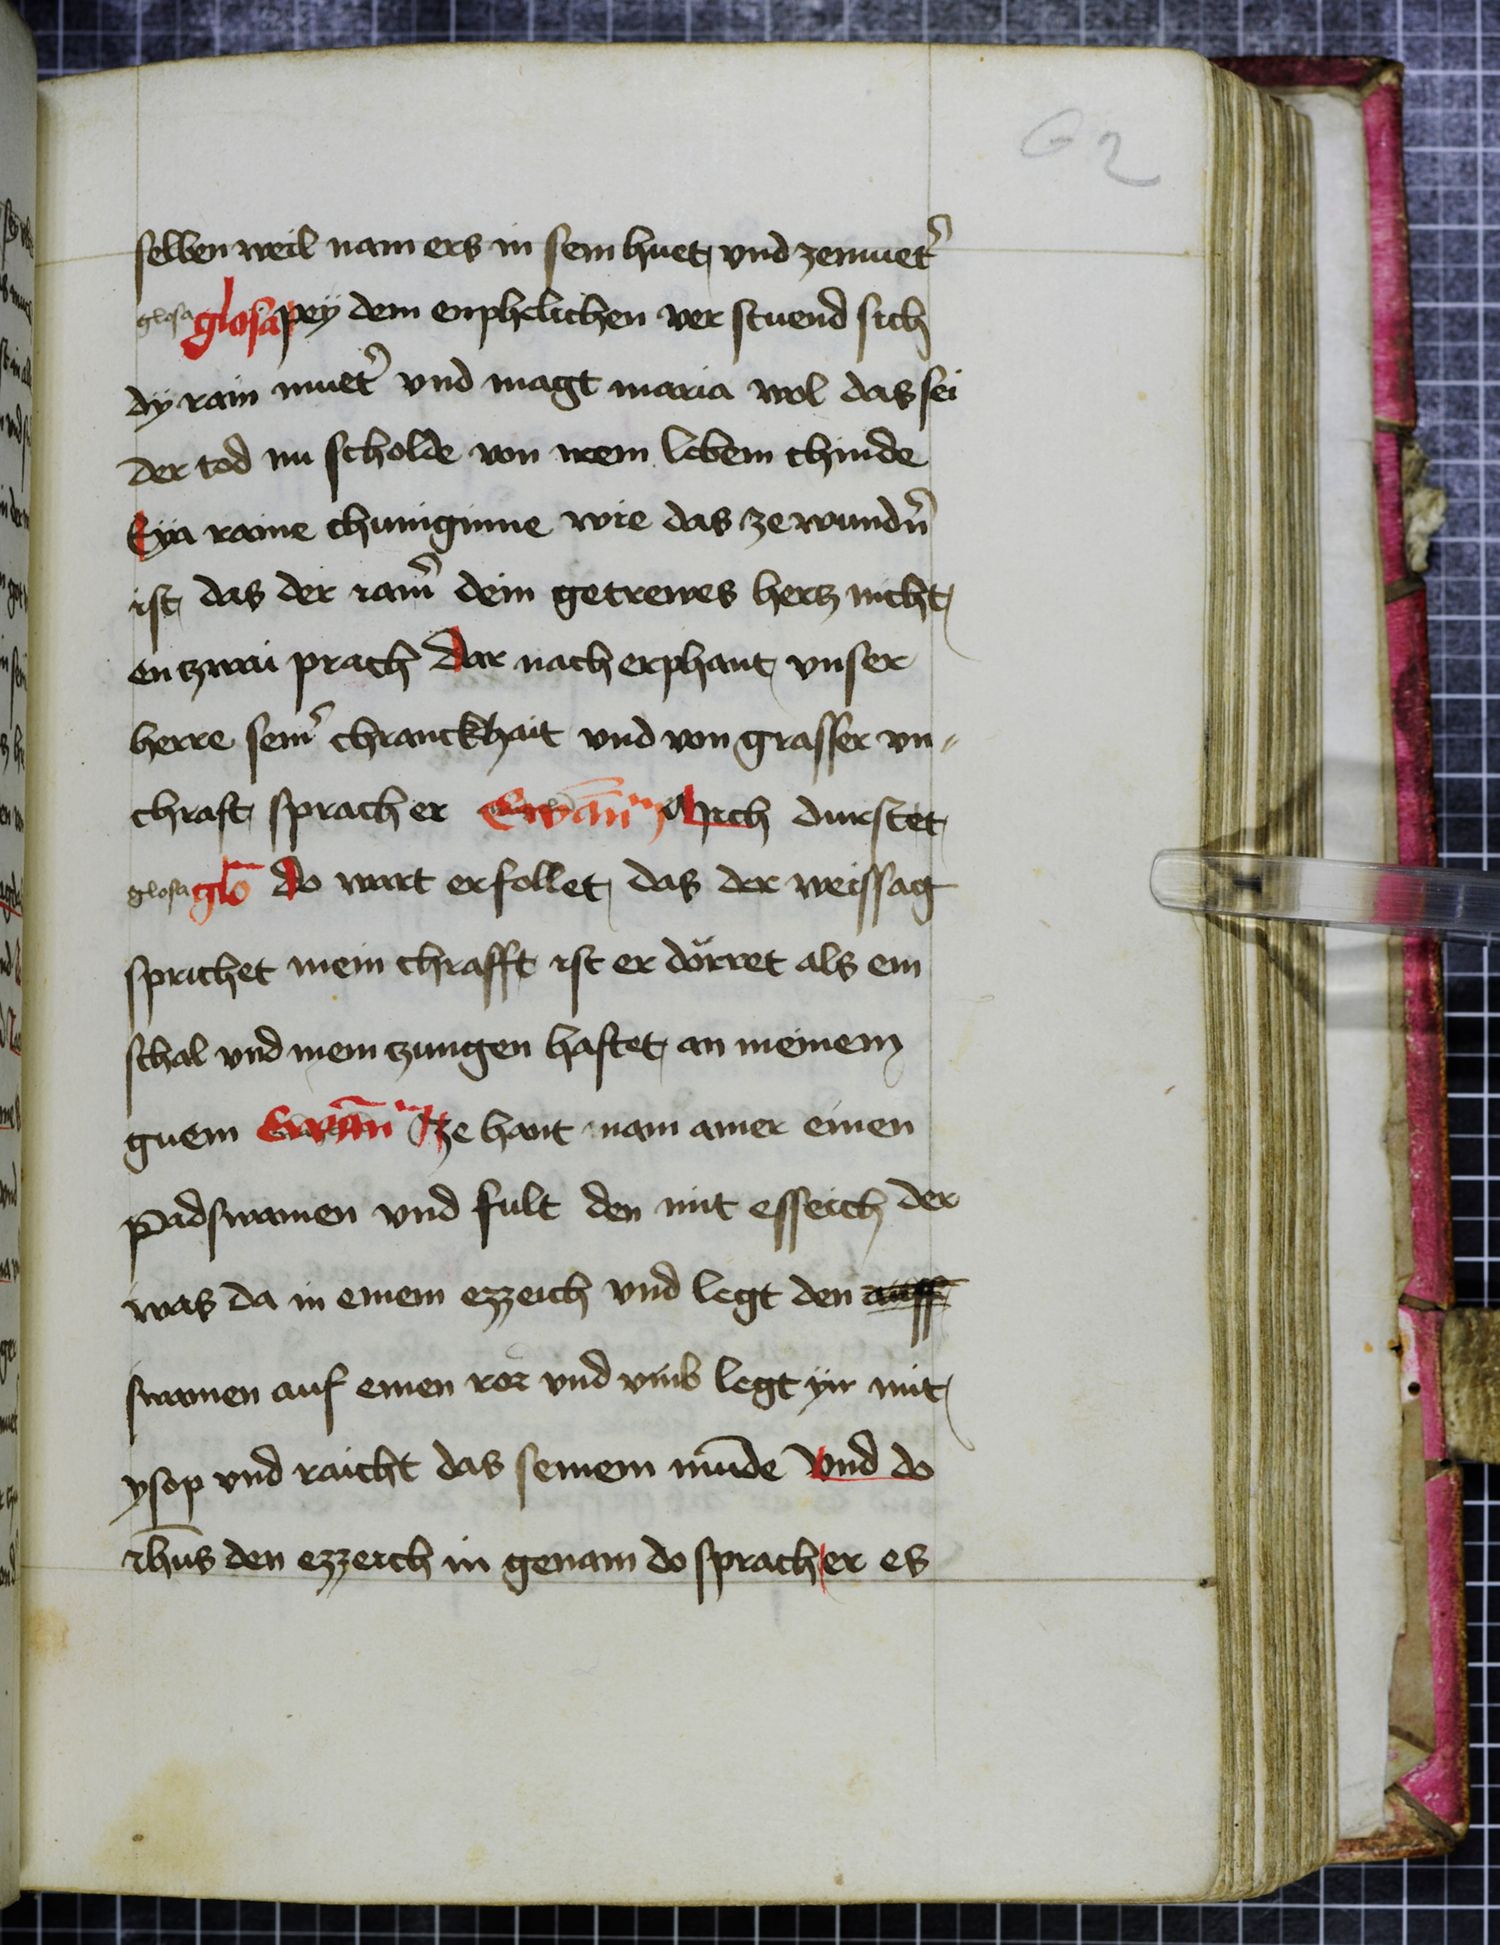 62
selben weil nam ers in sein huet und ze muet̾
glosa glosa pey dem enphelichen ver stuend sich
dy rain muet̾ vnd magt maria wol das sei
der tod nu scholde von irem lebem chinde
Eya raine chuniginne wie das ze wund̾n
ist das der iam̾ dein getrewes hertz nicht
en tzwai prach Dar nach erphant vnser
herre sein̾ chranckhait vnd von grasser vn-
chraft sprach er Ewān̄m Mich durstet
glosa glō Do wart erfollet das der weissag
sprichet mein chrafft ist er dörret als ein
schal vnd mein tzungen haftet an meinem
guem Ewān̄m Ze hant nam ainer einen
padswamen vnd fult den mit esseich der
was da in einem ezzeich vnd legt den auff
swamen auf einen ror vnd vmb legt yn mit
ysop vnd raicht das seinem mūde Vnd do
ihūs den ezzeich in genam do sprach er es